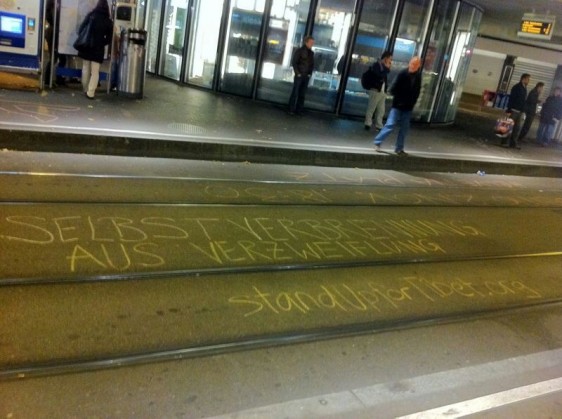 SELBSTVERBRENNUNG
AUS VERZWEIFLUNG
standUpforTibet.org